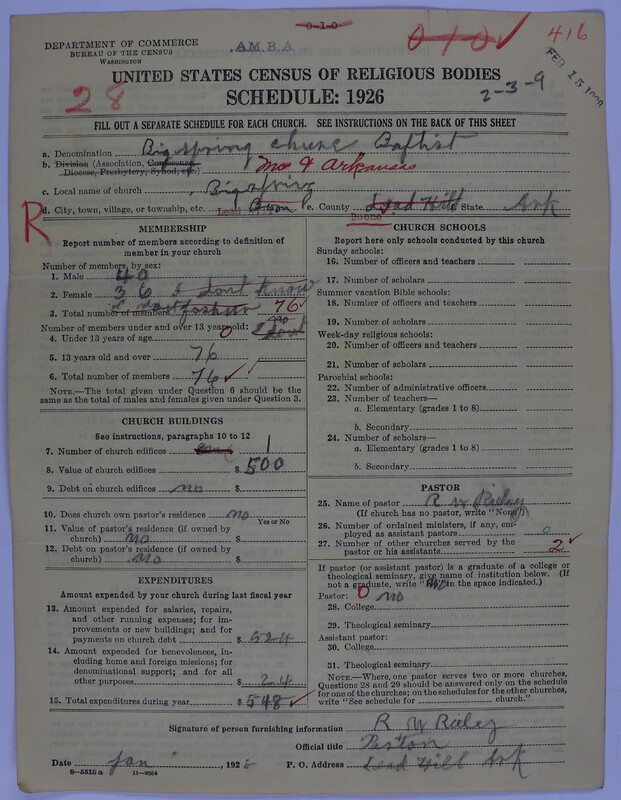 0-1-0
010✓
416
DEPARTMENT OF COMMERCE
BUREAU OF THE CENSUS
WASHINGTON
A M B A
FEB 15
28
UNITED STATES CENSUS OF RELIGIOUS BODIES
SCHEDULE: 1926
2-3-9
FILL OUT A SEPARATE SCHEDULE FOR EACH CHURCH. SEE INSTRUCTIONS ON THE BACK OF THIS SHEET
a. Denomination Big spring Baptist
b. Division (Association, Conference, Diocese, Presbytery, Synod, etc.) Mo & Arkansas
c. Local name of church Big spring
R
d. City, town, village, or township, etc. Lead e. County Lead Hill State Ark
Boone
MEMBERSHIP
Report number of members according to definition of
member in your church
Number of members, by sex:
1. Male 40
2. Female 36 I dont know
3. Total number of members 76
Number of members under and over 13 years old: no
4. Under 13 years of age 0 I dont
5. 13 years old and over 76
6. Total number of members 76 ✓
NOTE.—The total given under Question 6 should be the
same as the total of males and females given under Question 3.
CHURCH BUILDINGS
See instructions, paragraphs 10 to 12
7. Number of church edifices 1
8. Value of church edifices $ 500
9. Debt on church edifices no $
10. Does church own pastor's residence no
Yes or No
11. Value of pastor's residence (if owned by
church) no $
12. Debt on pastor's residence (if owned by
church) no $
EXPENDITURES
Amount expended by your church during last fiscal year
13. Amount expended for salaries, repairs,
and other running expenses; for im-
provements or new buildings; and for
payments on church debt $ 524
14. Amount expended for benevolences, in-
cluding home and foreign missions; for
denominational support; and for all
other purposes $ 24
15. Total expenditures during year $ 548 ✓
CHURCH SCHOOLS
Report here only schools conducted by this church
Sunday schools:
16. Number of officers and teachers
17. Number of scholars
Summer vacation Bible schools:
18. Number of officers and teachers
19. Number of scholars
Week-day religious schools:
20. Number of officers and teachers
21. Number of scholars
Parochial schools:
22. Number of administrative officers
23. Number of teachers—
a. Elementary (grades 1 to 8)
b. Secondary
24. Number of scholars—
a. Elementary (grades 1 to 8)
b. Secondary
PASTOR
25. Name of pastor R W
(If church has no pastor, write "None")
26. Number of ordained ministers, if any, em-
ployed as assistant pastors 0
27. Number of other churches served by the
pastor or his assistants 2 ✓
If pastor (or assistant pastor) is a graduate of a college or
theological seminary, give name of institution below. (If
not a graduate, write "No" in the space indicated.)
Pastor: 0 no
28. College
29. Theological seminary
Assistant pastor:
30. College
31. Theological seminary
NOTE.—Where, one pastor serves two or more churches,
Questions 28 and 29 should be answered only on the schedule
for one of the churches; on the schedules for the other churches,
write "See schedule for church."
Signature of person furnishing information R W
Official title Paston
Date Jan , 1928 P. O. Address Lead Hill Ark
8—5518 a 11—9054